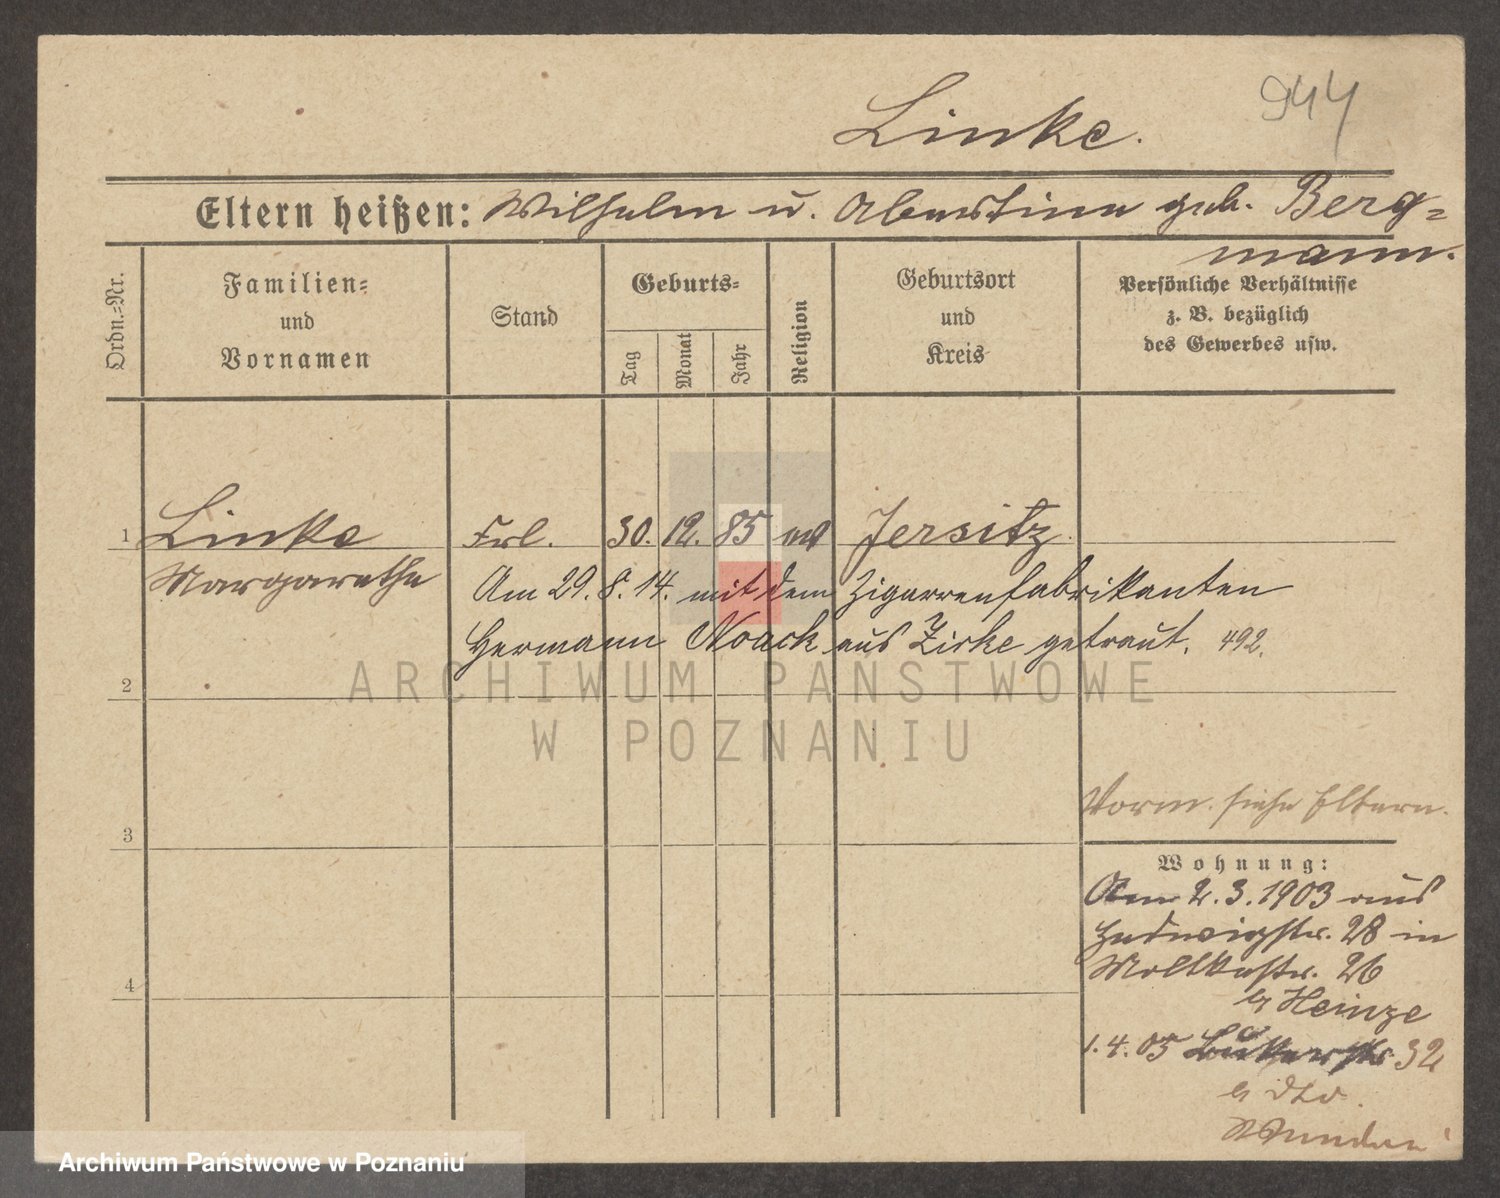 944
Linke.
Eltern heißen: Wilhelm u. Albertine geb. Berg=
mann.
Ordn.=Nr.
Familien=
und
Vornamen
Stand
Geburts=
Tag
Monat
Jahr
Religion
Geburtsort
und
Kreis
Persönliche Verhältnisse
z. B. bezüglich
des Gewerbes usw.
1 Linke Frl. 30. 12. 85 Jersitz
Margarethe
Am 29. 8. 14. mit dem Zigarrenfabrikanten
Hermann Noack aus Zirke getraut. 492.
2
ARCHIWUM PAŃSTWOWE
W POZNANIU
Vorm. siehe Eltern.
3
Wohnung:
Am 2. 3. 1903 aus
Hedwigstr. 28 in
Moltkestr. 26
b/ Heinze
4
1. 4. 05 32
b/ dto.
Archiwum Państwowe w Poznaniu